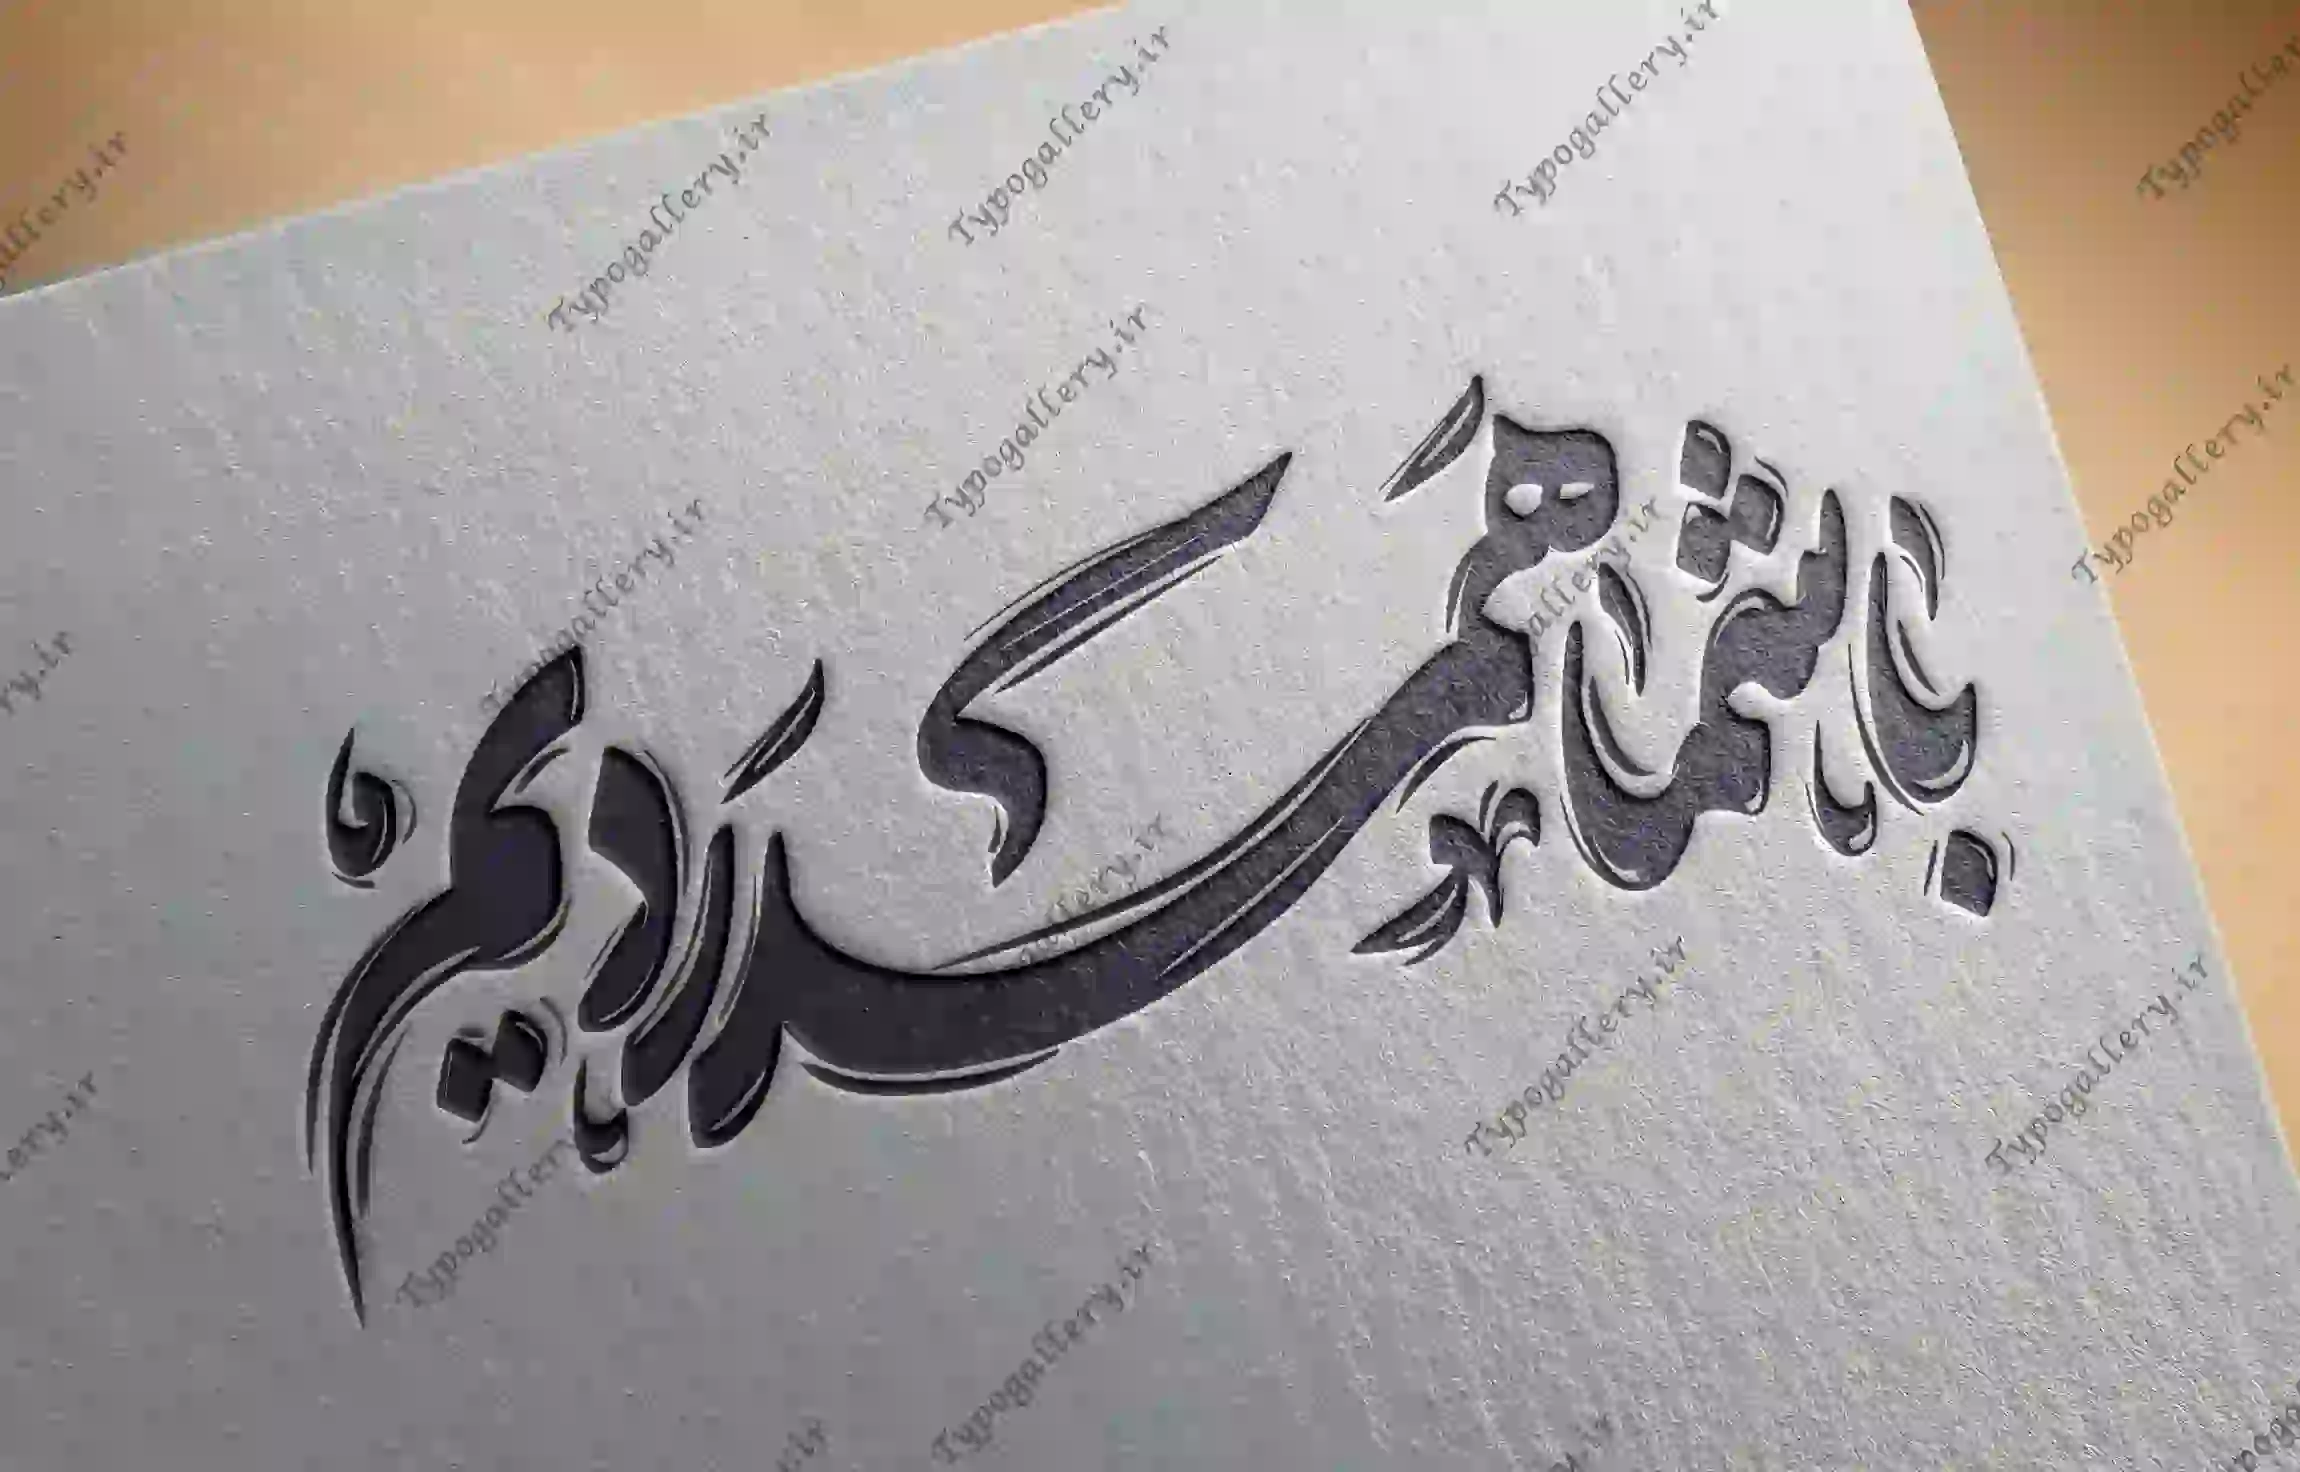 با شما هَمدَردیم
Typogallery.ir